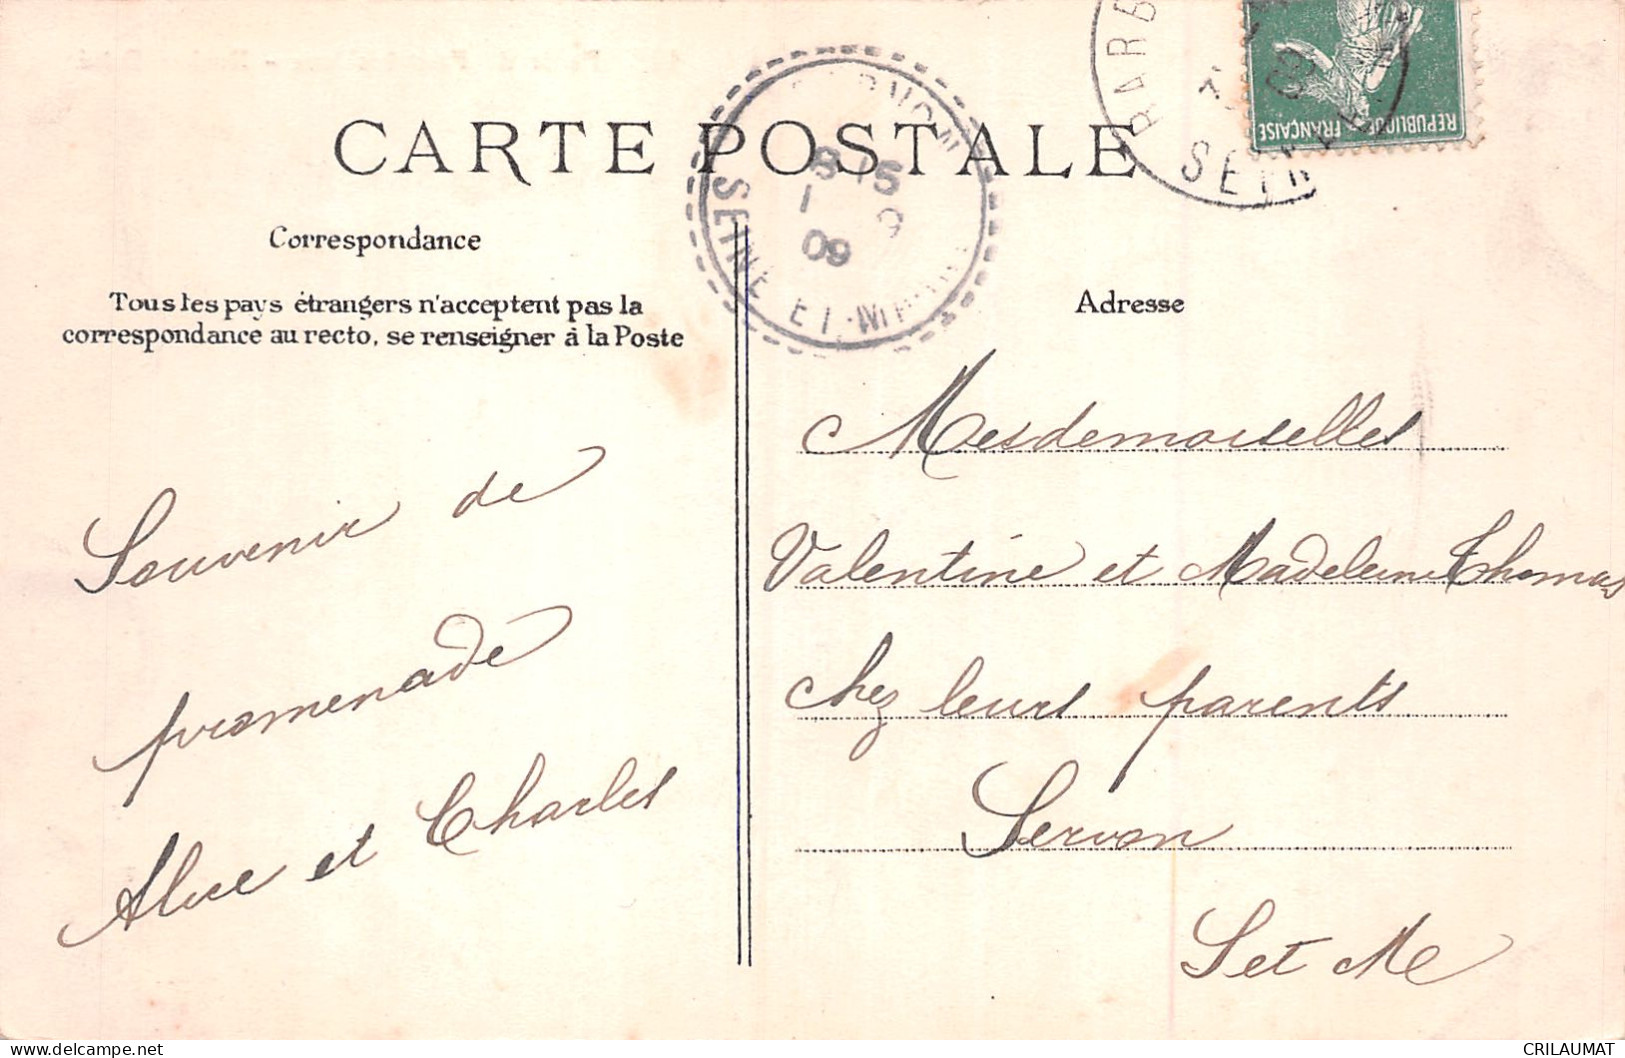 CARTE POSTALE
Correspondance
Tous les pays étrangers n'acceptent pas la
correspondance au recto, se renseigner à la Poste
Souvenir de
promenade
Alice et Charles
SEINE ET
8 15
1 9
09
BARB
SEINE
REPUBLIQUE FRANÇAISE
Adresse
Mesdemoiselles
Valentine et Madeleine Thomas
chez leurs parents
Servon
S et Me
CRILAUMAT